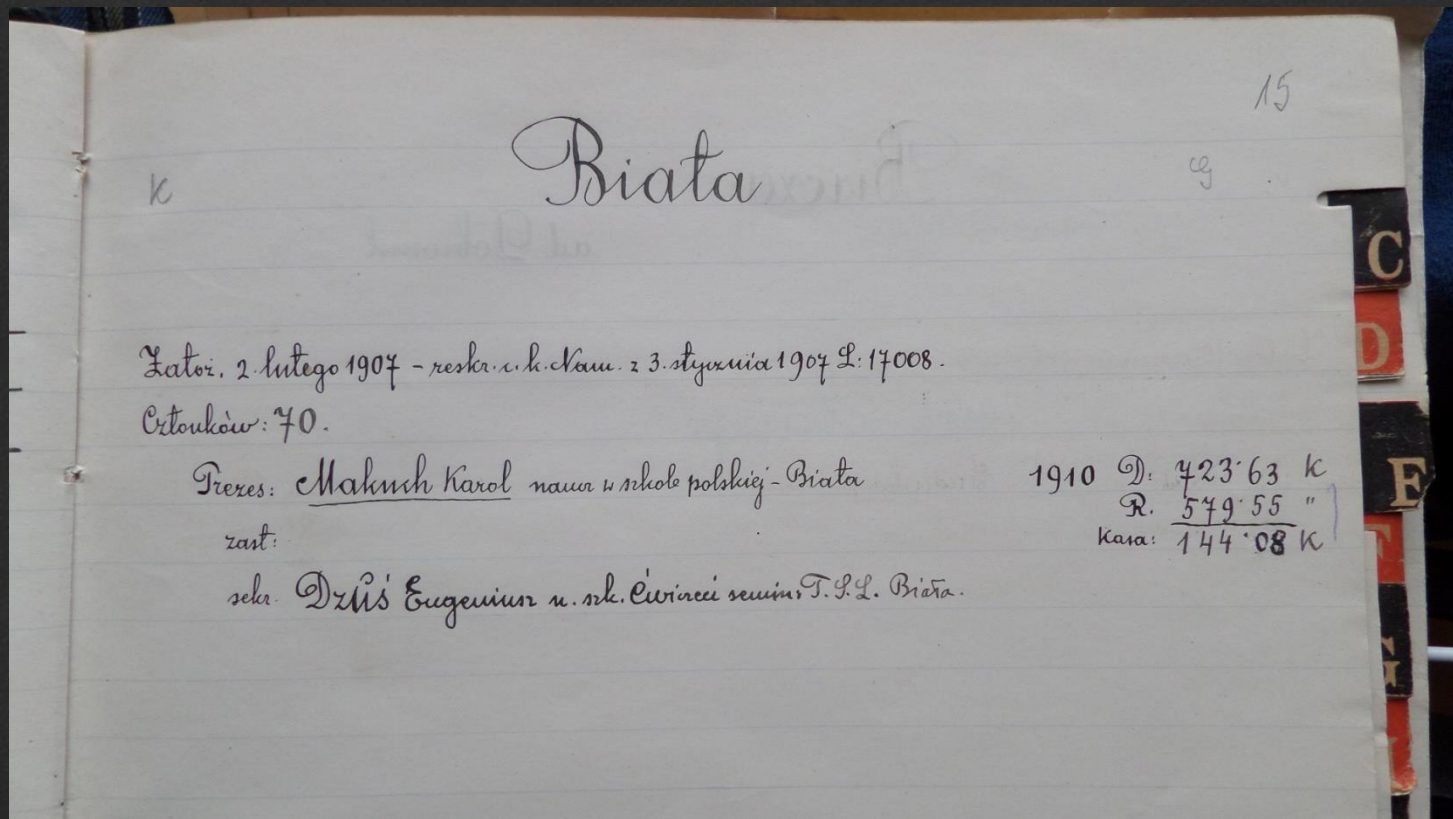 15
Biała
K
Założ. 2. lutego 1907 - reskr. c. k. Nam. z 3. stycznia 1907 L: 17008.
Członków: 70.
Prezes: Makuch Karol naucz w szkole polskiej - Biała
1910 D: 723·63 K
R. 579·55 "
zast:
Kasa: 144·08 K
sekr. Dzűś Eugeniusz n. szk. ćwiczeń semin: T. S. L. Biała.
C
D
E
F
G